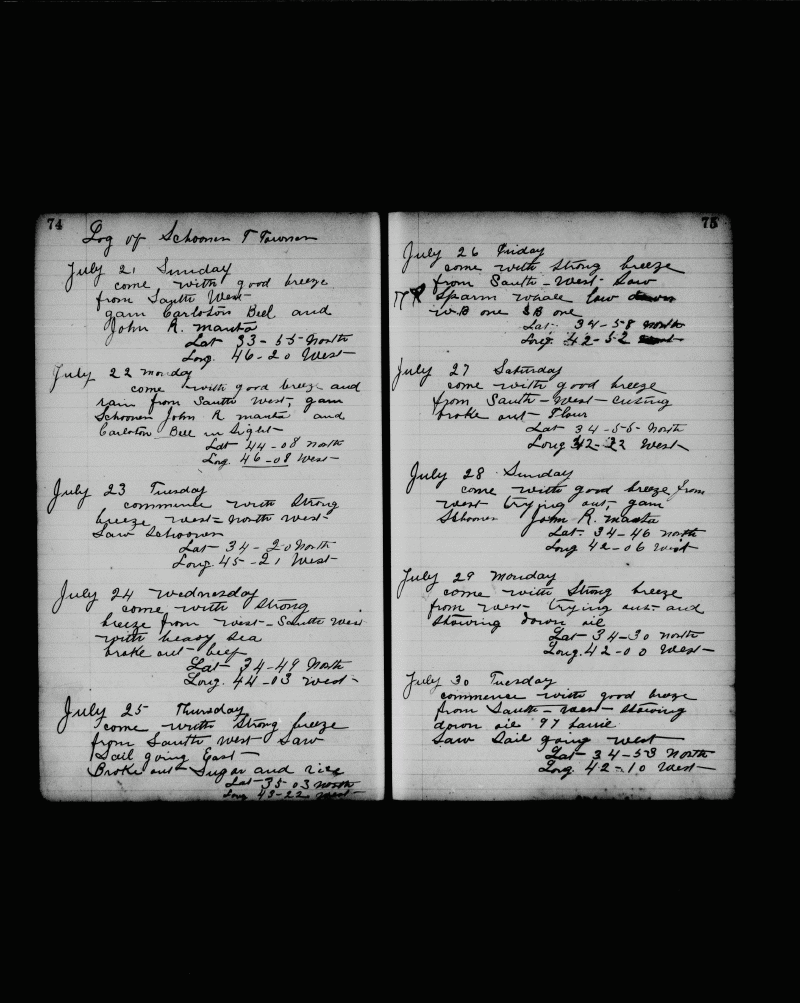 74
Log of Schooner T Towner
July 21 Sunday
come with good breeze
from South West
gam Carloton Bell and
John R. Manta
Lat 33-55 North
Long. 46-20 West
July 22 Monday
come with good breeze and
rain from South West, gam
Schooner John R Manta and
Carloton Bell in sight
Lat 44-08 North
Long. 46-08 West
July 23 Tuesday
commence with Strong
breeze west = north west
Saw Schooner
Lat 34-20 North
Long. 45-21 West
July 24 Wednesday
come with Strong
breeze from West-South West
with heavy Sea
broke out beef
Lat 34-49 North
Long. 44-03 West
July 25 Thursday
come with Strong breeze
from South West Saw
Sail going East
Broke out Sugar and rice
Lat 35-03 North
Long 43-22 West
75
July 26 Friday
come with Strong breeze
from South-West Saw
Sparm whale low down
W.B one SB one
Lat. 34-58 North
Long. 42-52
July 27 Saturday
come with good breeze
from South-West-cuting
broke out Flour
Lat 34-55 North
Long 42-22 West
July 28 Sunday
come with good breeze from
west trying out, gam
Schooner John R. Manta
Lat. 34-46 North
Long 42-06 West
July 29 Monday
come with Strong breeze
from west trying out and
Stowing down oil
Lat 34-30 North
Long. 42-00 West
July 30 Tuesday
commence with good breze
from South-West Stowing
down oil 97 barrel
Saw Sail going West
Lat 34-53 North
Long. 42-10 West